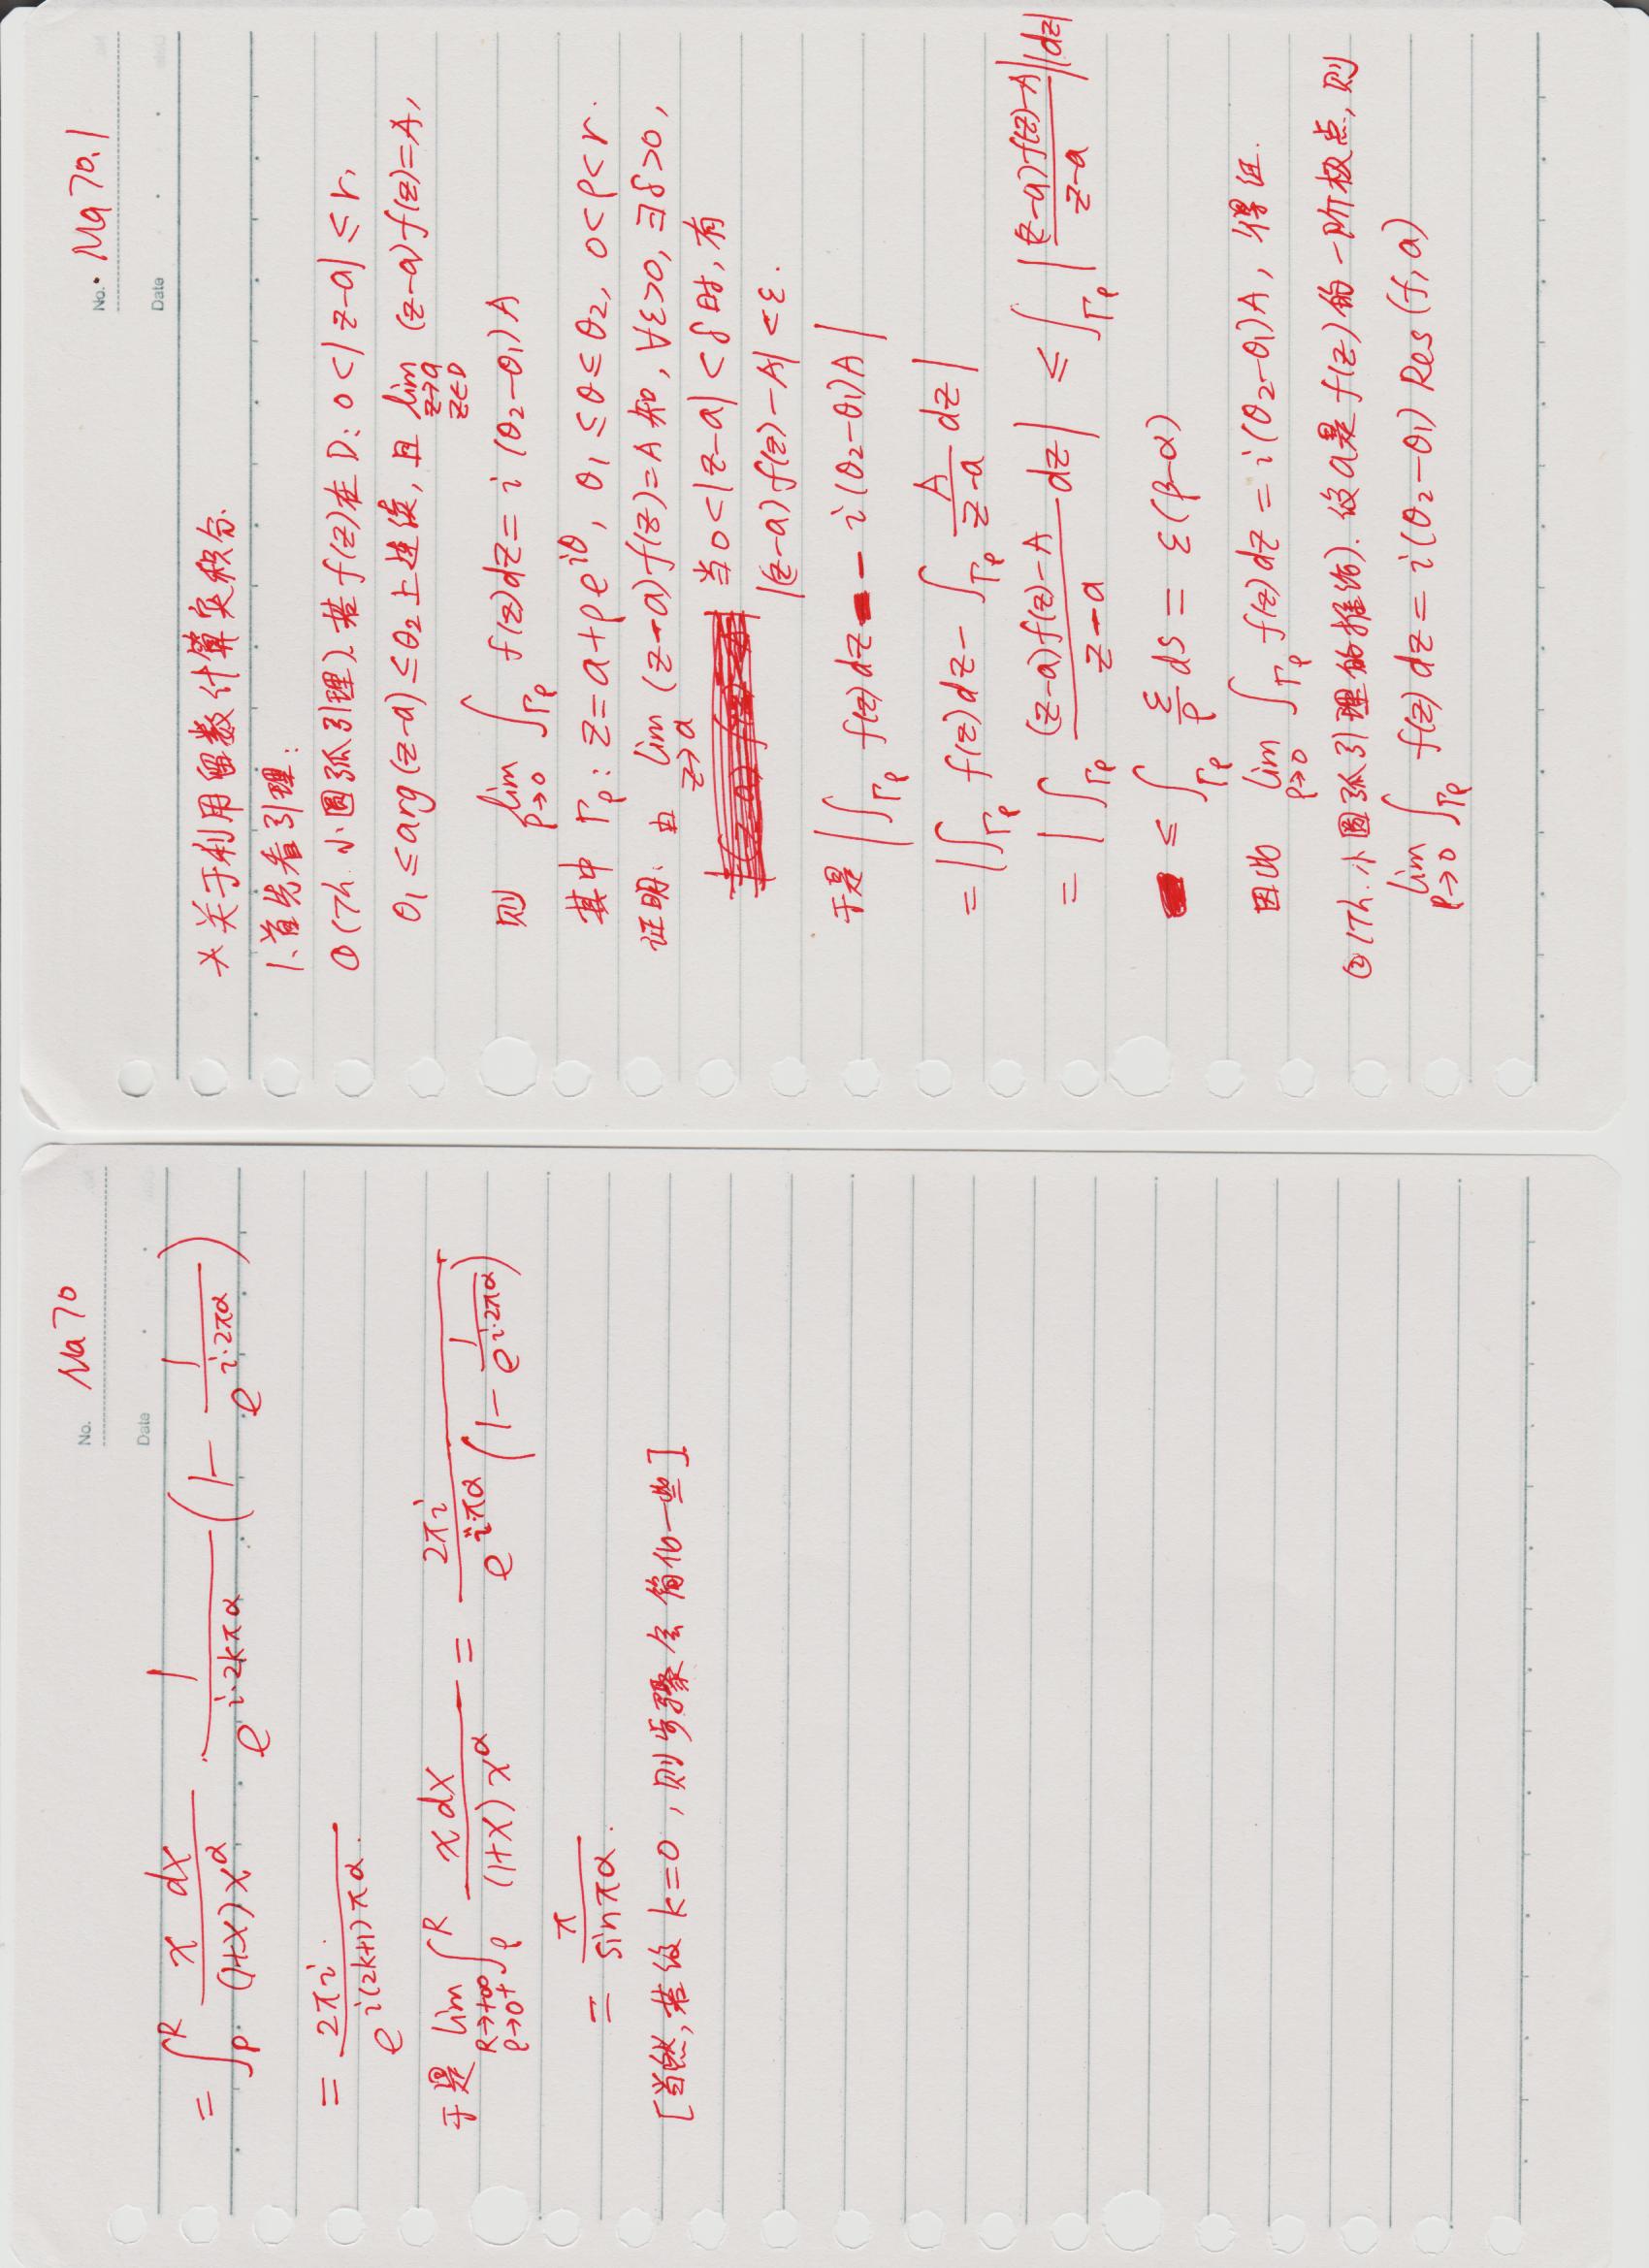 No. Ma 70
Date
= ∫_ρ^R \frac{x dx}{(1+x) x^α} · \frac{1}{e^{i·2kπα}} (1 - \frac{1}{e^{i·2πα}})
= \frac{2πi}{e^{i(2k+1)πα}}.
于是 \lim_{R→+∞, ρ→0^+} ∫_ρ^R \frac{x dx}{(1+x) x^α} = \frac{2πi}{e^{i·πα} (1 - \frac{1}{e^{i·2πα}})}
= \frac{π}{sin πα}.
[当然, 若设 k=0, 则步骤会简化一些]
No. Ma 70.1
Date
* 关于利用留数计算实积分.
1. 首先看引理:
① (Th. 小圆弧引理). 若 f(z) 在 D: 0<|z-a|≤r,
θ₁≤arg(z-a)≤θ₂ 上连续, 且 \lim_{z→a, z∈D} (z-a)f(z)=A,
则 \lim_{ρ→0} ∫_{Γ_ρ} f(z)dz = i(θ₂-θ₁)A
其中 Γ_ρ: z=a+ρe^{iθ}, θ₁≤θ≤θ₂, 0<ρ<r.
证明. 由 \lim_{z→a} (z-a)f(z)=A 知, ∀ε>0, ∃δ>0,
当 0<|z-a|<δ 时, 有
|(z-a)f(z)-A|<ε.
于是 |∫_{Γ_ρ} f(z)dz - i(θ₂-θ₁)A|
= |∫_{Γ_ρ} f(z)dz - ∫_{Γ_ρ} \frac{A}{z-a} dz|
= |∫_{Γ_ρ} \frac{(z-a)f(z)-A}{z-a} dz| ≤ ∫_{Γ_ρ} |\frac{(z-a)f(z)-A}{z-a}||dz|
≤ ∫_{Γ_ρ} \frac{ε}{ρ} ds = ε(β-α)
因此 \lim_{ρ→0} ∫_{Γ_ρ} f(z)dz = i(θ₂-θ₁)A, 得证.
② (Th. 小圆弧引理的推论). 设 a 是 f(z) 的一阶极点, 则
\lim_{ρ→0} ∫_{Γ_ρ} f(z)dz = i(θ₂-θ₁) Res(f, a)